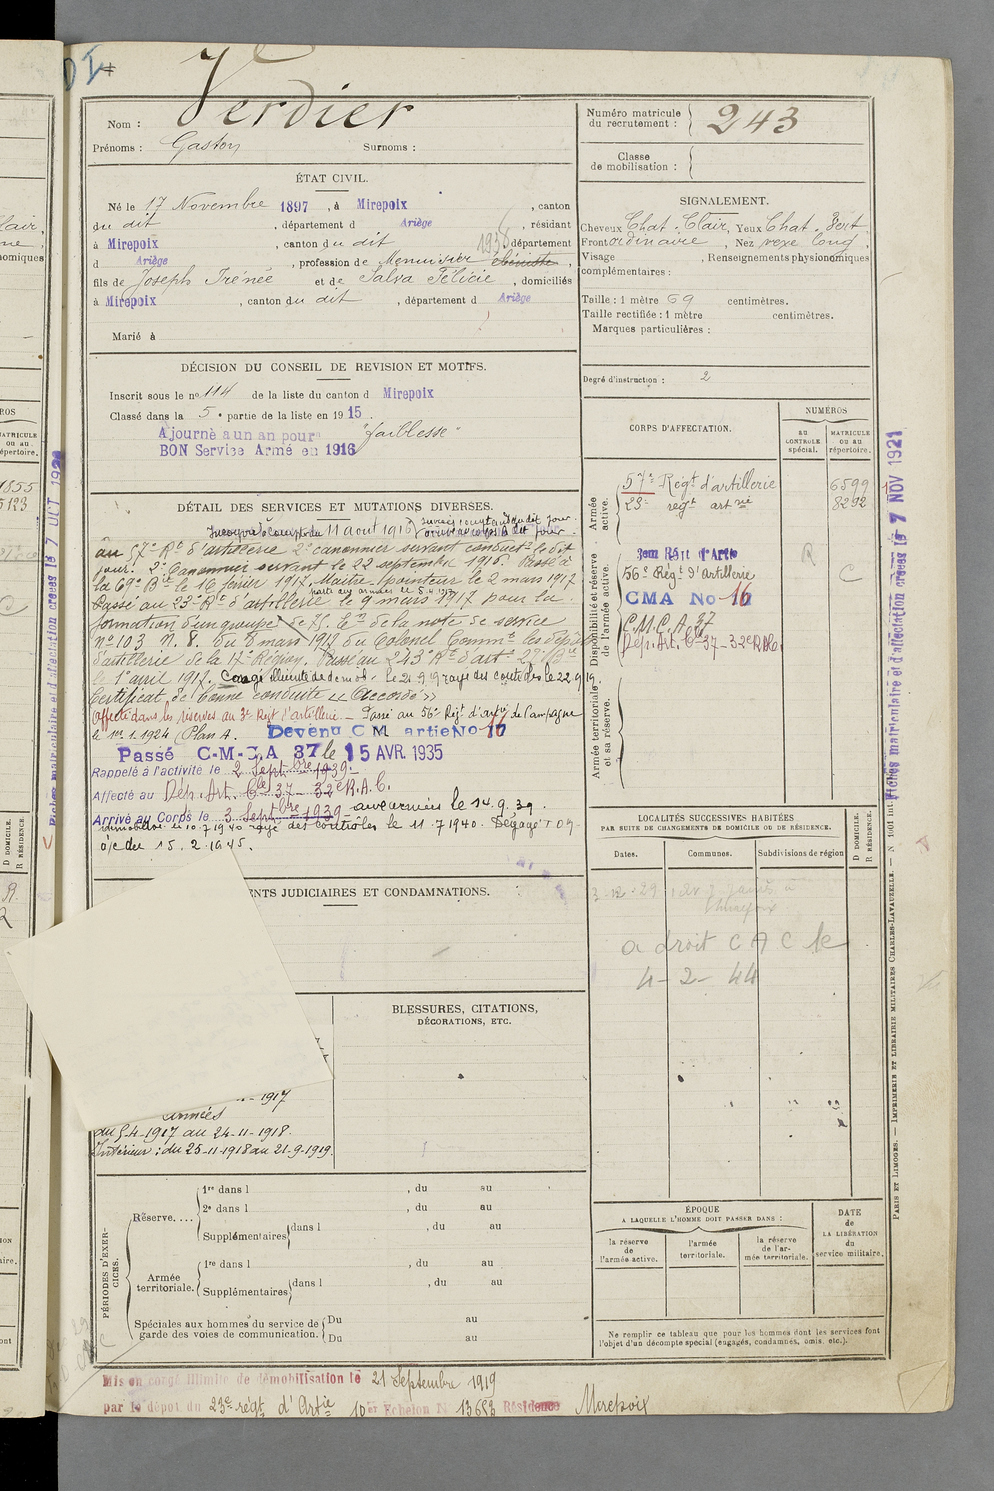 Verdier
Nom :
Prénoms : Gaston Surnoms :
Numéro matricule
du recrutement : 243
Classe
de mobilisation :
ÉTAT CIVIL.
Né le 17 Novembre 1897, à Mirepoix, canton
du dit, département d Ariège, résidant
à Mirepoix, canton du dit 1938 département
d Ariège, profession de Menuisier ébéniste,
fils de Joseph Irénée et de Salva Félicie, domiciliés
à Mirepoix, canton du dit, département d Ariège
Marié à
SIGNALEMENT.
Cheveux Chat. Clair, Yeux Chat. Vert
Front ordinaire, Nez vexe long.
Visage , Renseignements physionomiques
complémentaires :
Taille : 1 mètre 69 centimètres.
Taille rectifiée : 1 mètre centimètres.
Marques particulières :
Degré d'instruction : 2
DÉCISION DU CONSEIL DE REVISION ET MOTIFS.
Inscrit sous le n° 114 de la liste du canton d Mirepoix
Classé dans la 5e partie de la liste en 1915.
Ajourné a un an pour "faiblesse"
BON Service Armé en 1916
CORPS D'AFFECTATION.
NUMÉROS
AU CONTRÔLE spécial.
MATRICULE OU AU répertoire.
Armée active.
57e Régt d'artillerie 6599
23e régt art 8292
Disponibilité et réserve de l'armée active.
3em Régt d'Artie R
56e Régt d'Artillerie C
CMA No 16
C.M.C.A. 37
Dép. Art. Cle 37 - 32e RAC.
Armée territoriale et sa réserve.
DÉTAIL DES SERVICES ET MUTATIONS DIVERSES.
Incorporé à compter du 11 aout 1916
au 57e Rt d'artillerie 2e canonnier servant conduct. le dit
jour. 2e Canonnier servant le 22 septembre 1916. Passé à
la 69e Bie le 16 février 1917. Maitre-pointeur le 2 mars 1917
parti aux armées le 5.4.1917
Passé au 23e Rt d'artillerie le 9 mars 1917 pour la
formation d'un groupe de 75. Ten de la note de service
No 103 N. 8. du 8 mars 1917 du Colonel Commt les dépôts
d'artillerie de la 17e Région. Passé au 243e Rt d'art. 29e Bie
le 1er avril 1917. Congé illimité de démob. le 21.9.19 rayé des contrôles le 22.9.19.
Certificat de bonne conduite "Accordé"
Affecté dans les réserves au 3e Régt d'artillerie - Passé au 56e Régt d'artie de Campagne
le 1er.1.1924 (Plan A. Devenu C M artie No 16
Passé C-M-C.A 37 le 15 AVR. 1935
Rappelé à l'activité le 2 Septbre 1939.
Affecté au Dép. Art. Cle 37 - 32e R.A.C.
Arrivé au Corps le 3 Septbre 1939 - aux armées le 14.9.39.
Démobilisé le 10.7.1940 rayé des contrôles le 11.7.1940. Dégagé T O M
à/c du 15.2.1945.
LOCALITÉS SUCCESSIVES HABITÉES
PAR SUITE DE CHANGEMENTS DE DOMICILE OU DE RÉSIDENCE.
Dates. Communes. Subdivisions de région
D DOMICILE.
R RÉSIDENCE.
3-12-29
a droit C A C le
4-2-44
ENTS JUDICIAIRES ET CONDAMNATIONS.
BLESSURES, CITATIONS,
DÉCORATIONS, ETC.
1917
Armées
du 5-4-1917 au 24-11-1918.
Intérieur : du 25-11-1918 au 21-9-1919.
PÉRIODES D'EXERCICES.
Réserve....
1re dans l , du au
2e dans l , du au
Supplémentaires dans l , du au
Armée territoriale.
1re dans l , du au
Supplémentaires dans l , du au
Spéciales aux hommes du service de garde des voies de communication.
Du au
Du au
ÉPOQUE
A LAQUELLE L'HOMME DOIT PASSER DANS :
la réserve de l'armée active.
l'armée territoriale.
la réserve de l'armée territoriale.
DATE de LA LIBÉRATION du service militaire.
Ne remplir ce tableau que pour les hommes dont les services font
l'objet d'un décompte spécial (engagés, condamnés, omis, etc.).
Mis en congé illimité de démobilisation le 21 Septembre 1919
par le dépôt du 23e régt d'Artie 10er Echelon N° 13653 Résidence Mirepoix
Fiches matriculaire et d'affectation créées le 7 NOV 1921
PARIS ET LIMOGES. — IMPRIMERIE ET LIBRAIRIE MILITAIRES CHARLES-LAVAUZELLE. — N° 1001 int.